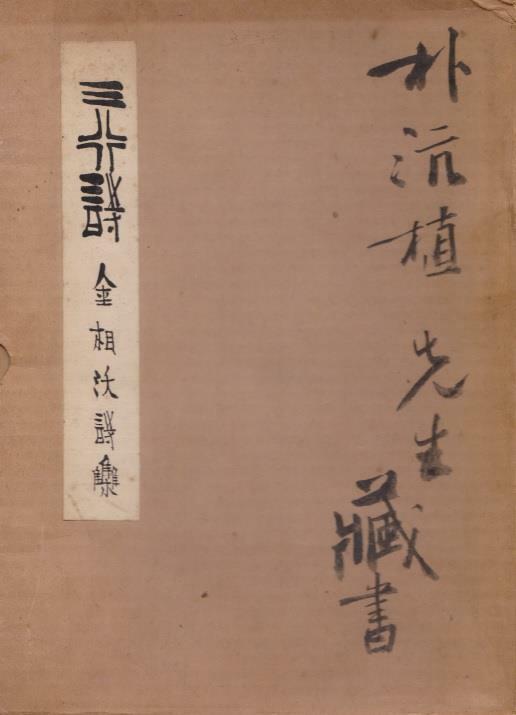 朴沆植 先生 藏書
三行詩 金相沃詩集